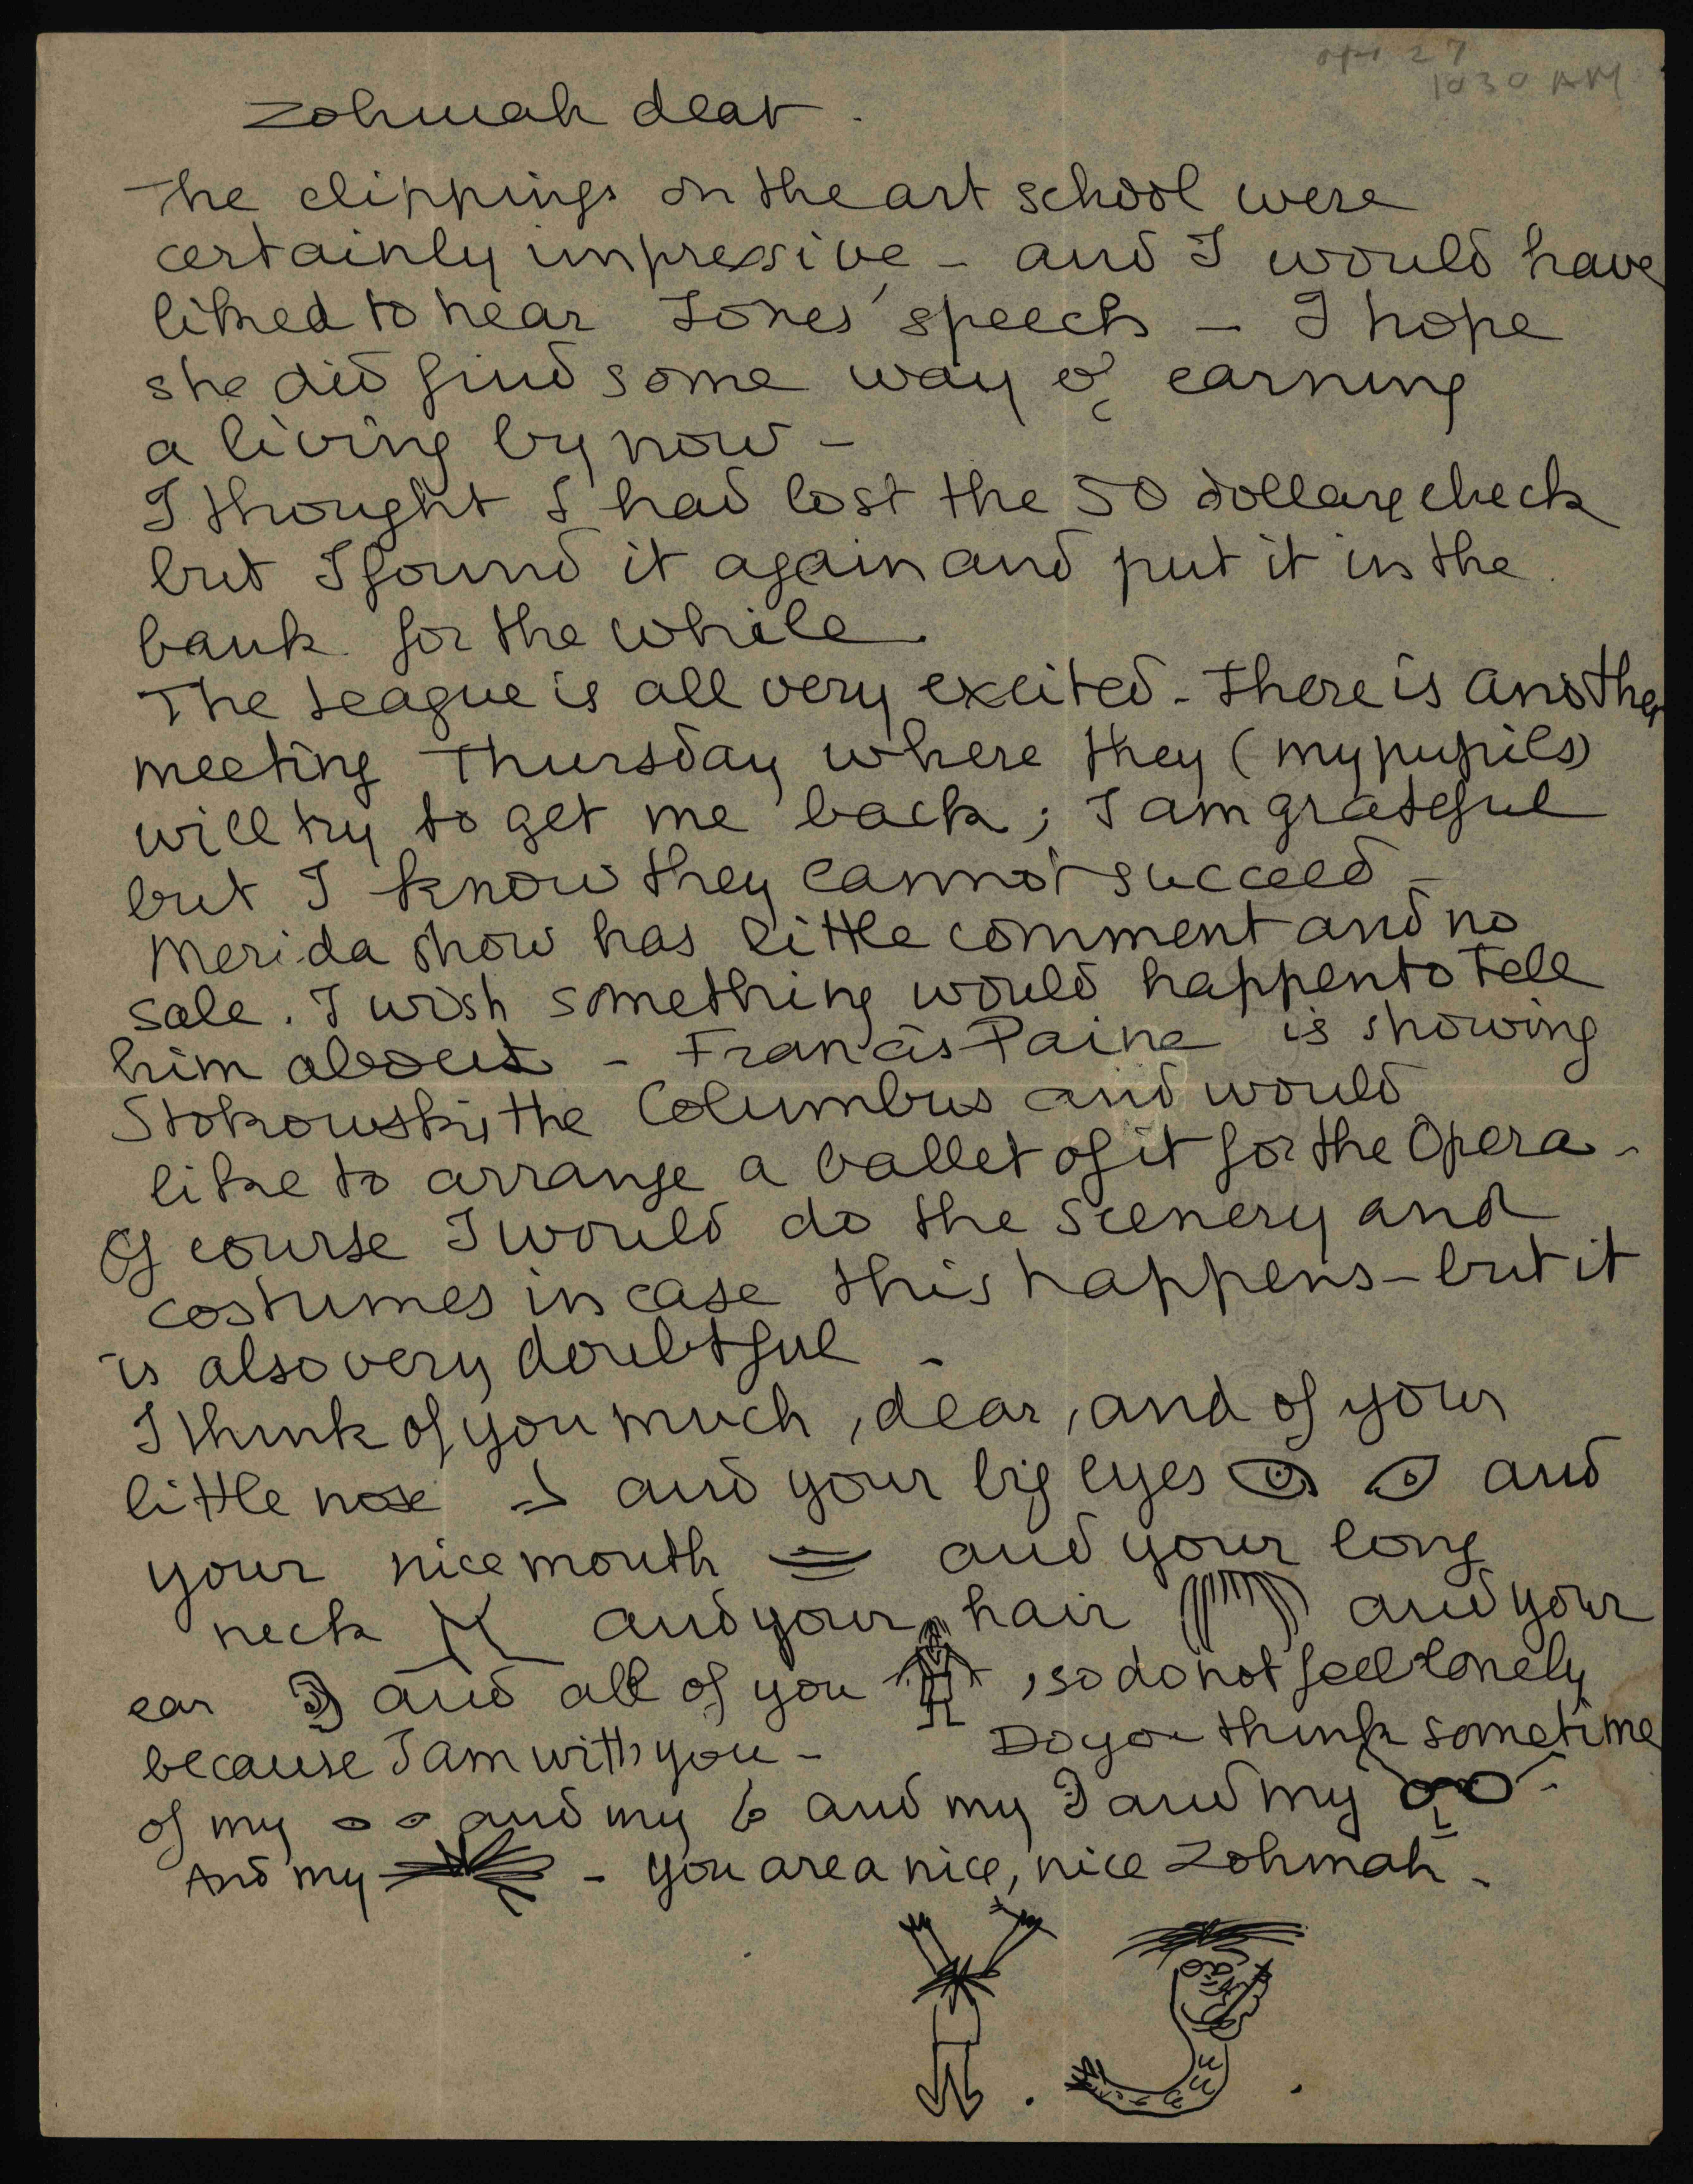 Apr 27
10 30 AM
Zohmah dear.
The clippings on the art school were
certainly impressive - and I would have
liked to hear Jones' speech - I hope
she did find some way of earning
a living by now -
I thought I had lost the 50 dollars check
but I found it again and put it in the
bank for the while.
The League is all very excited. There is another
meeting Thursday where they (my pupils)
will try to get me back; I am grateful
but I know they cannot succeed -
Merida show has little comment and no
sale. I wish something would happen to tell
him about - Francis Paine is showing
Stokowski, the Columbus and would
like to arrange a ballet of it for the Opera -
Of course I would do the scenery and
costumes in case this happens - but it
is also very doubtful -
I think of you much, dear, and of your
little nose and your big eyes and
your nice mouth and your long
neck and your hair and your
ear and all of you , so do not feel lonely
because I am with you - Do you think sometime
of my and my and my and my -
And my - you are a nice, nice Zohmah -